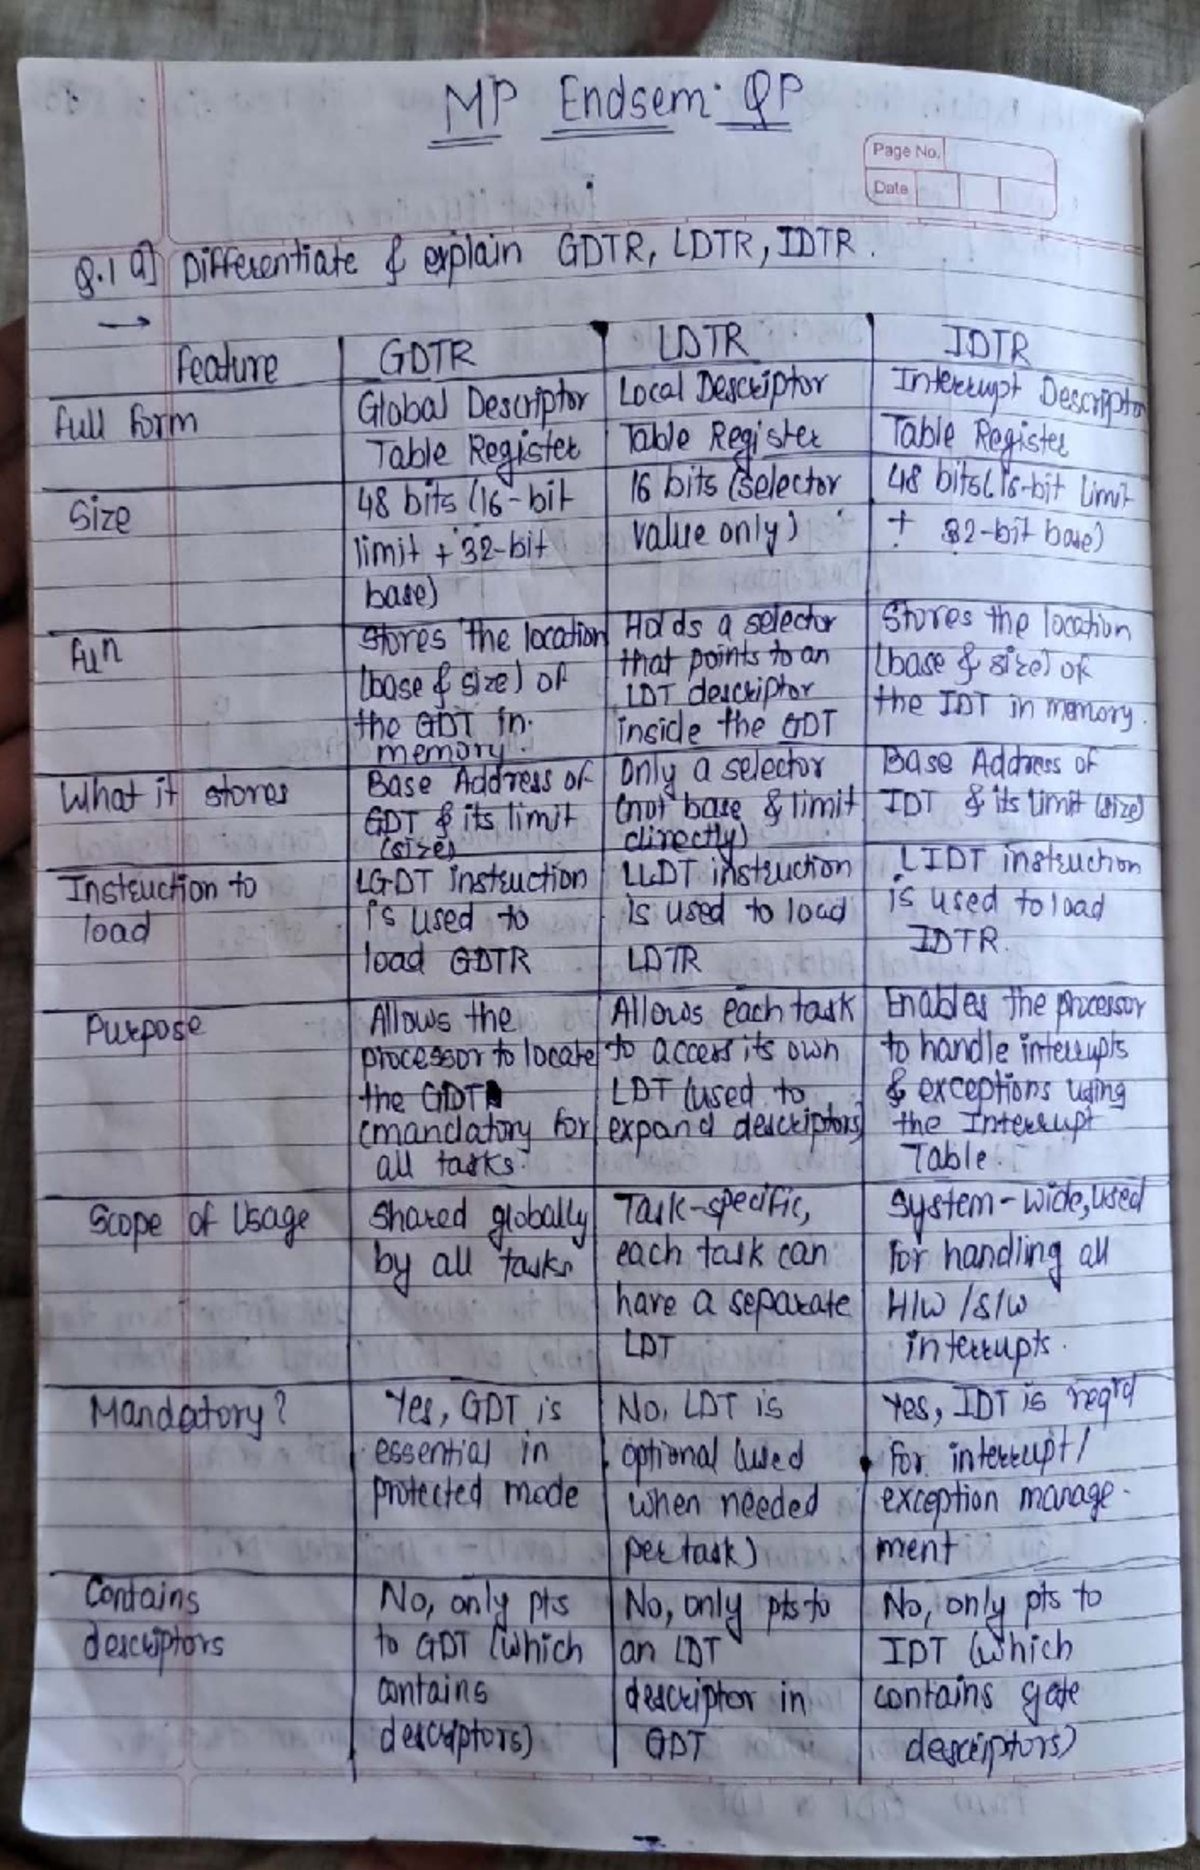 MP Endsem QP
Page No.
Date
Q.1 a] Differentiate & explain GDTR, LDTR, IDTR.
→
Feature GDTR LDTR IDTR
Full form
Global Descriptor
Table Register
Local Descriptor
Table Register
Interrupt Descriptor
Table Register
Size
48 bits (16-bit
limit + 32-bit
base)
16 bits (selector
value only)
48 bits (16-bit limit
+ 32-bit base)
fun
Stores the location
(base & size) of
the GDT in
memory.
Holds a selector
that points to an
LDT descriptor
inside the GDT
Stores the location
(base & size) of
the IDT in memory.
What it stores
Base Address of
GDT & its limit
(size)
Only a selector
(not base & limit
directly)
Base Address of
IDT & its limit (size)
Instruction to
load
LGDT instruction
is used to
load GDTR
LLDT instruction
is used to load
LDTR
LIDT instruction
is used to load
IDTR.
Purpose
Allows the
processor to locate
the GDT
(mandatory for
all tasks.
Allows each task
to access its own
LDT (used to
expand descriptors)
Enables the processor
to handle interrupts
& exceptions using
the Interrupt
Table.
Scope of Usage
Shared globally
by all tasks
Task-specific,
each task can
have a separate
LDT
System-wide, used
for handling all
H/W / S/W
interrupts.
Mandatory?
Yes, GDT is
essential in
protected mode
No, LDT is
optional (used
when needed
per task)
Yes, IDT is reqrd
for interrupt/
exception manage-
ment
Contains
descriptors
No, only pts
to GDT (which
contains
descriptors)
No, only pts to
an LDT
descriptor in
GDT
No, only pts to
IDT (which
contains gate
descriptors)